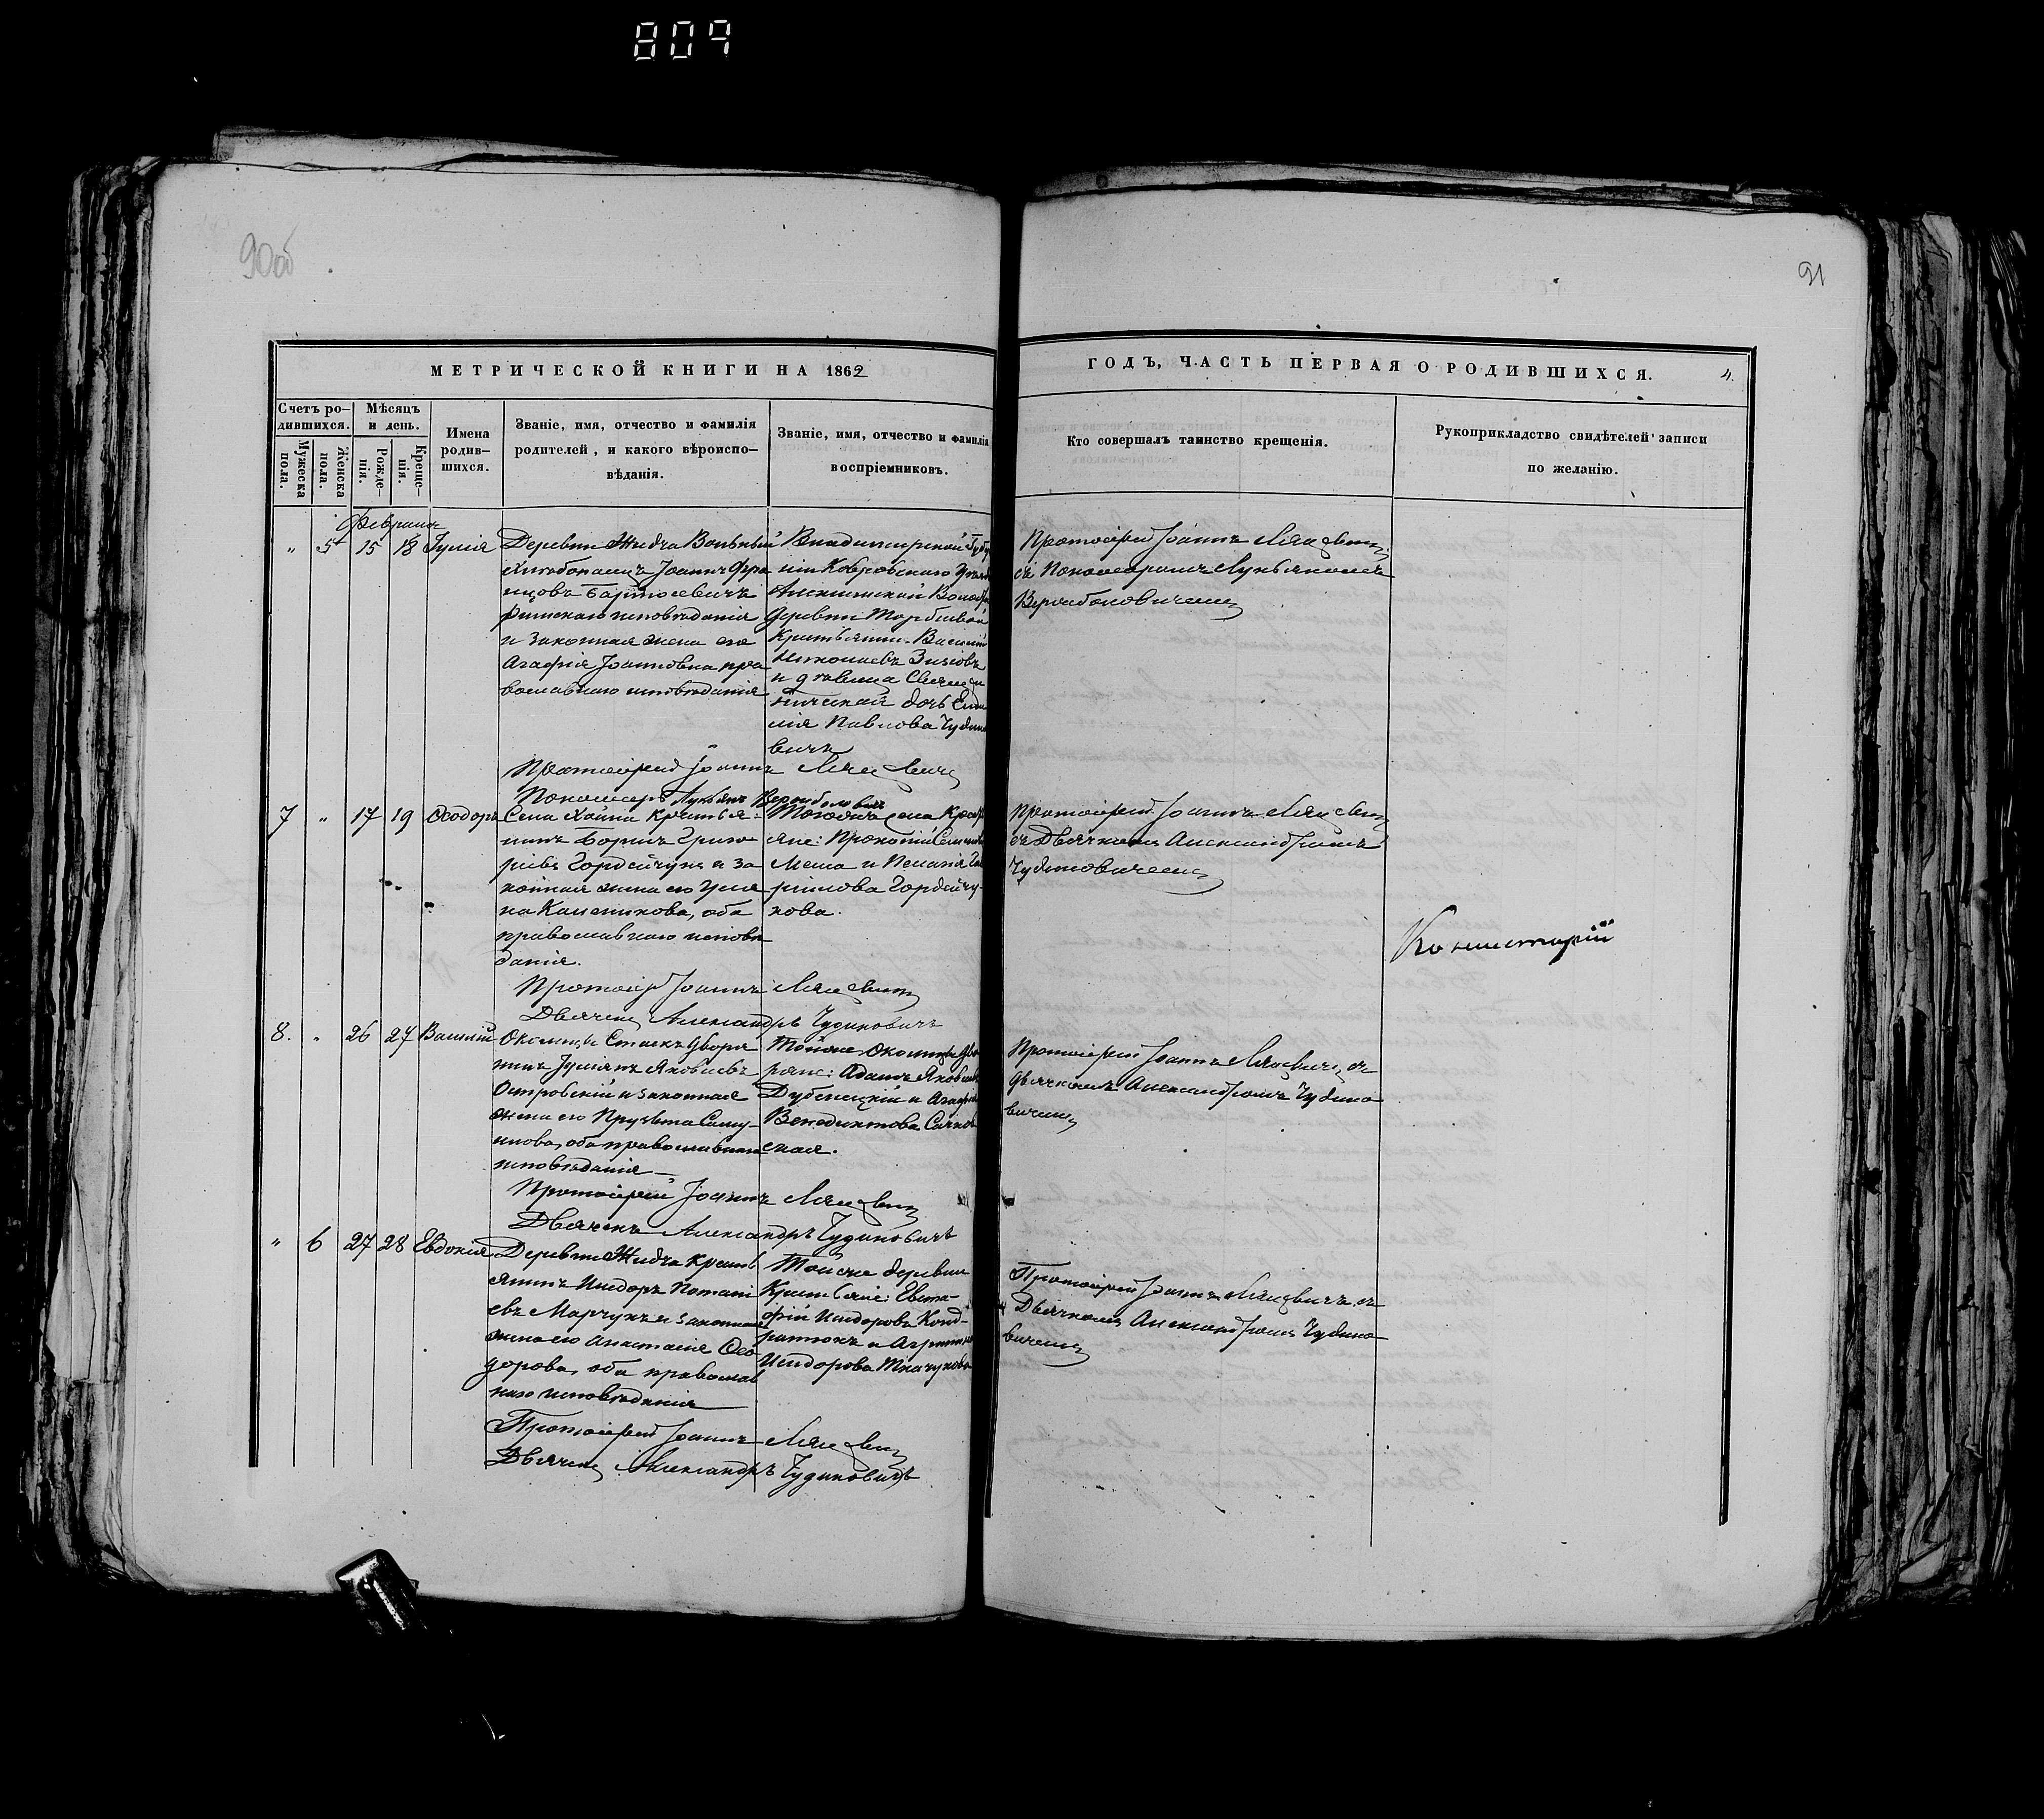 809
90об
91
МЕТРИЧЕСКОЙ КНИГИ НА 1862
ГОДЪ, ЧАСТЬ ПЕРВАЯ О РОДИВШИХСЯ.
4.
Счетъ ро-
дившихся.
Мужеска
пола.
Женска
пола.
Мѣсяцъ
и день.
Рожде-
нія.
Креще-
нія.
Имена
родив-
шихся.
Званіе, имя, отчество и фамилія
родителей, и какого вѣроиспо-
вѣданія.
Званіе, имя, отчество и фамилія
воспріемниковъ.
Кто совершалъ таинство крещенія.
Рукоприкладство свидѣтелей записи
по желанію.
Февраля
" 5 15 18 Іулія
Деревни Жидча Вольный
Хлѣбопашецъ Іоаннъ Фра
нцовъ
Римскаго исповѣданія
и законная жена его
Агафія Іоанновна пра
вославнаго исповѣданія
Владимирской Губер
ніи Ковровскаго Уѣзда
Волости
деревни
Крестьянинъ Василій
Николаевъ Зиновъ
и дѣвица Священ
ническая дочь
Павлова Чудино
вичъ
Протоіерей Іоаннъ
съ Пономаремъ Лукьяномъ
Вержболовичемъ
Протоіерей Іоаннъ
Пономарь Лукьянъ Вержболовичъ
7 " 17 19 Ѳеодоръ
Села Хойна Крестья-
нинъ Борисъ Григо
рьевъ Гордейчукъ и за
конная жена его Улья
на Калинникова, оба
православнаго исповѣ
данія.
Тогожъ села Кресть
яне: Прокопій
и Пелагія
Гордейчу-
кова.
Протоіерей Іоаннъ
съ Дьячкомъ Александромъ
Чудиновичемъ
Консисторій
Протоіерей Іоаннъ
Дьячекъ Александръ Чудиновичъ
8. " 26 27 Василій
Околицы Ставокъ Дворя
нинъ Іуліанъ Яковлевъ
Островскій и законная
жена его
оба православнаго
исповѣданія
Тойже Околицы Дво
ряне: Адамъ Яковлевъ
Дубенецкій и Агафія
Венедиктова
ская.
Протоіерей Іоаннъ
Дьячкомъ Александромъ Чудино
вичемъ
Протоіерей Іоаннъ
Дьячекъ Александръ Чудиновичъ
" 6 27 28 Евдокія
Деревни Жидча Кресть
янинъ Исидоръ Потапі
евъ Марчукъ и законная
жена его Анастасія Ѳео
дорова, оба православ
наго исповѣданія
Тойже деревни
Крестьяне: Евста-
фій Исидоровъ Конд-
ратюкъ и Агрипина
Исидорова Ткачукова
Протоіерей Іоаннъ
Дьячкомъ Александромъ Чудино
вичемъ
Протоіерей Іоаннъ
Дьячекъ Александръ Чудиновичъ